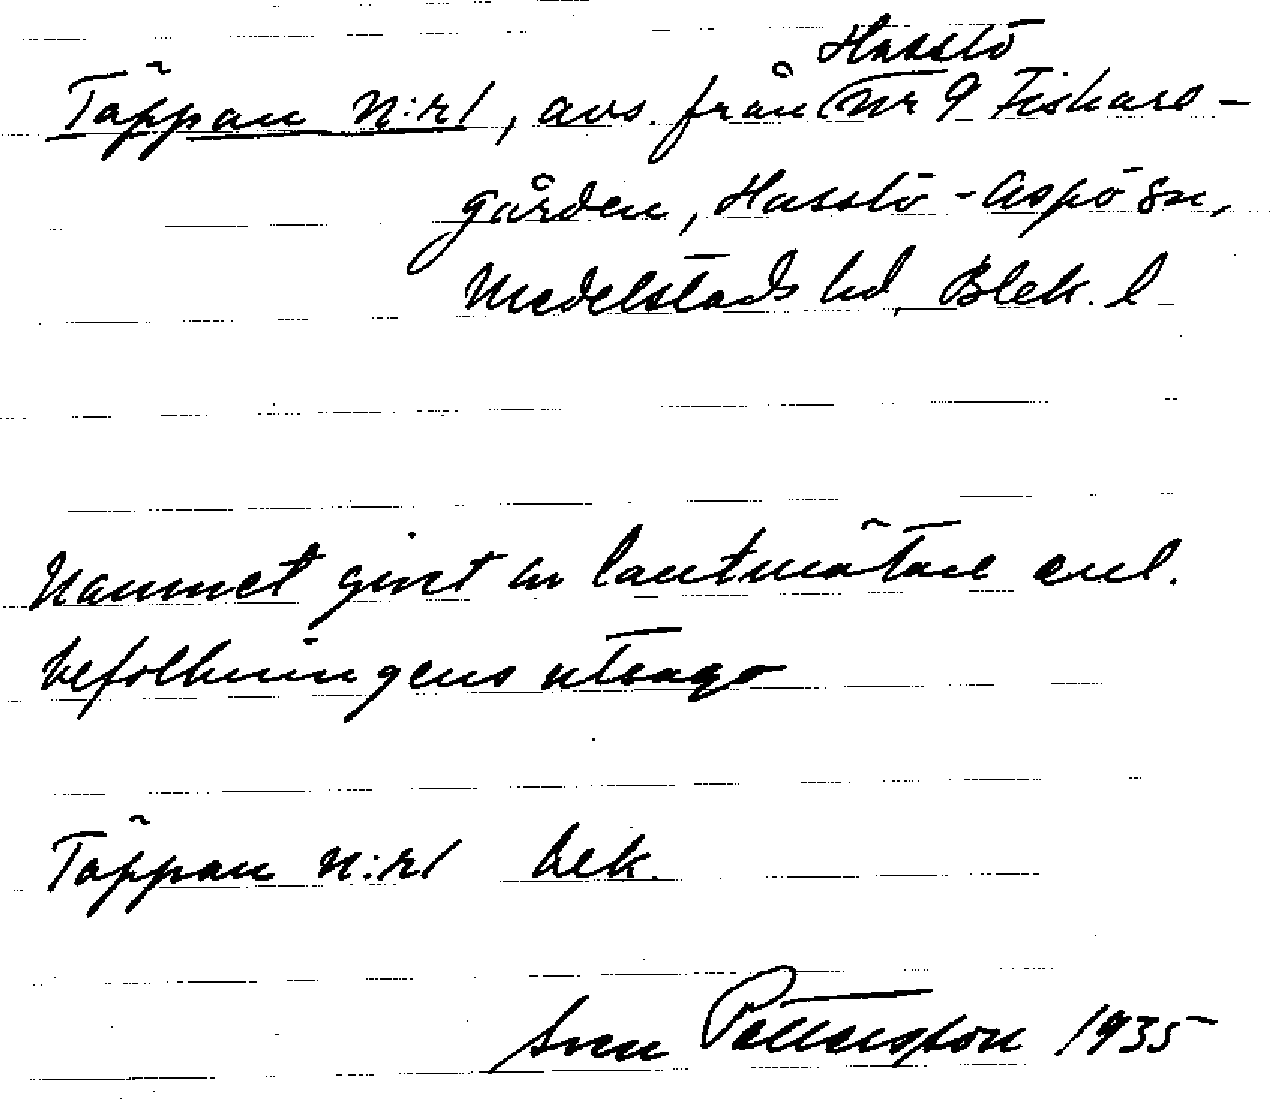 Täppan N:r 1, avs. från Hasslö nr 9 Fiskare-
gården, Hasslö-Aspö sn,
Medelstads hd, Blek. l
Namnet givet av lantmätare enl.
befolkningens utsago
Täppan N:r 1 bek.
Sven Pettersson 1935